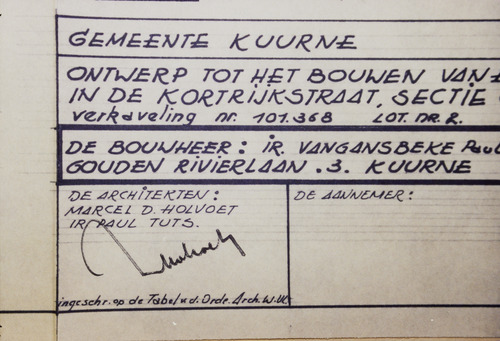 GEMEENTE KUURNE
ONTWERP TOT HET BOUWEN VAN
IN DE KORTRIJKSTRAAT, SECTIE
verkaveling nr. 101.368 LOT. NR. 2.
DE BOUWHEER: IR. VANGANSBEKE Paul
GOUDEN RIVIERLAAN .3. KUURNE
DE ARCHITEKTEN:
MARCEL D. HOLVOET
IR PAUL TUTS.
ingeschr. op de Tabel v.d. Orde. Arch. W.Vl.
DE AANNEMER: